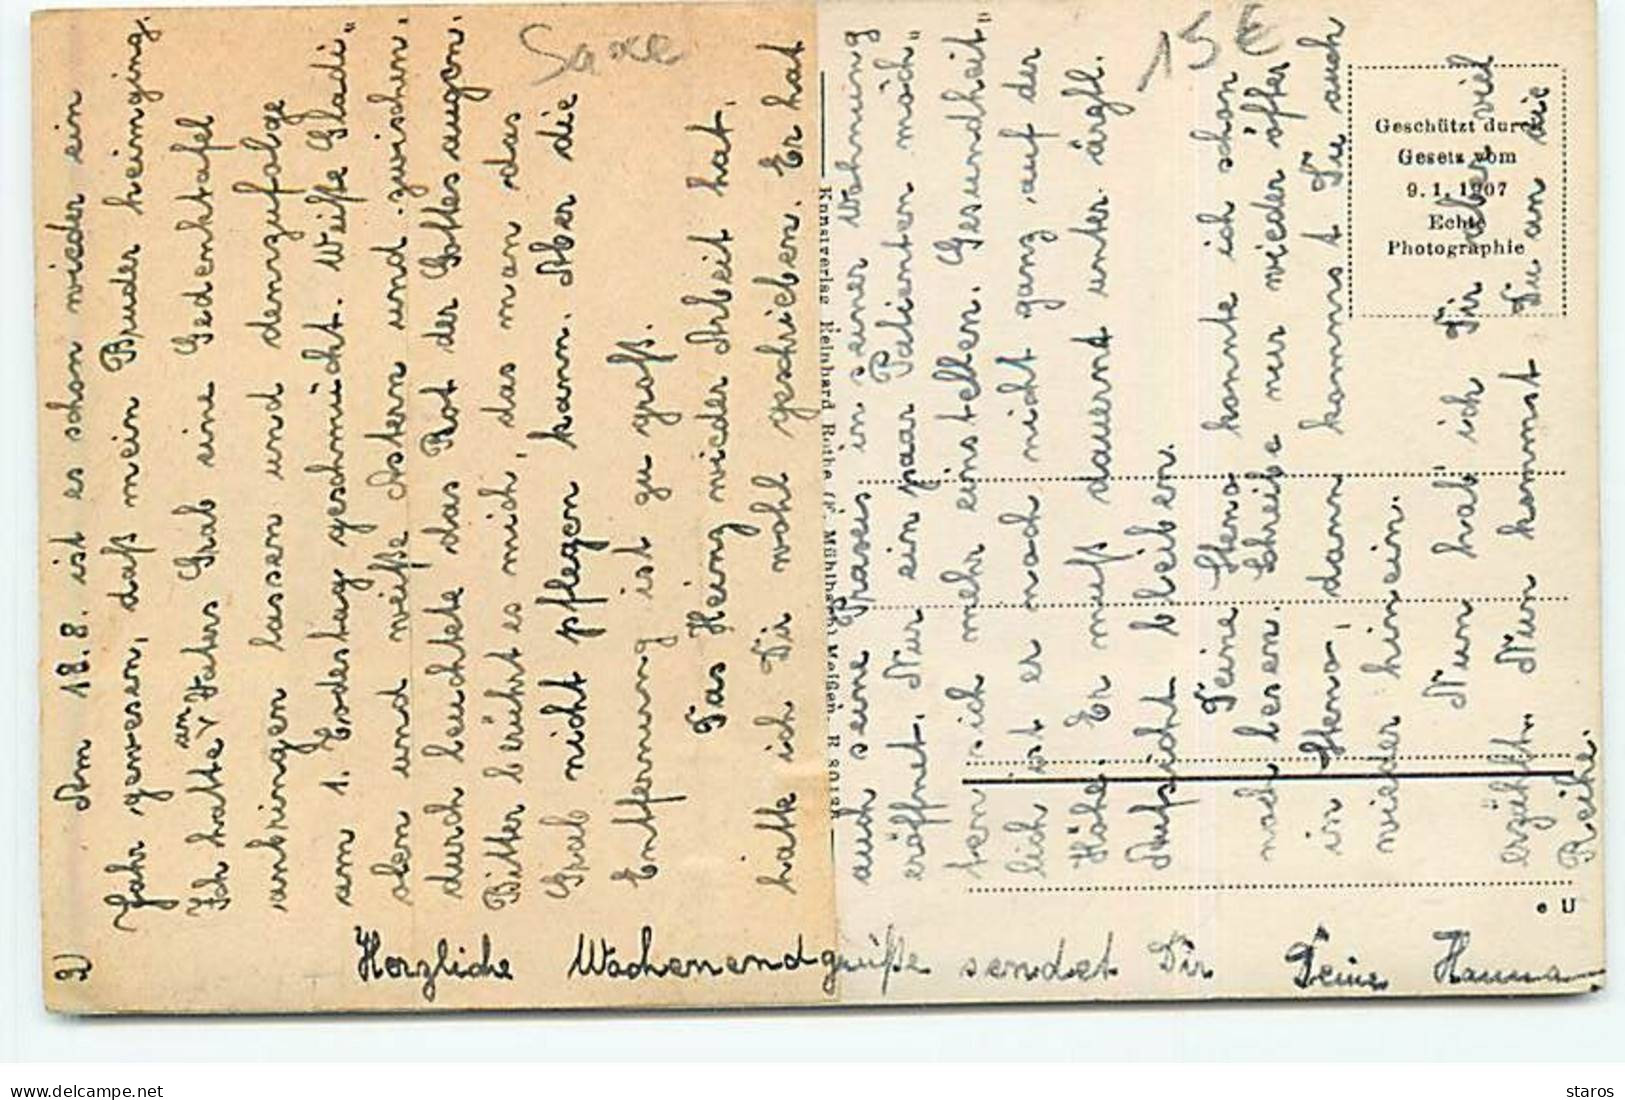 2)
Am 18.8. ist es schon wieder ein
Jahr gewesen, daß mein Bruder heimging.
Ich hatte an Vaters Grab eine Gedenktafel
anbringen lassen und demzufolge
am 1. Todestag geschmückt. Weiße Gladi„
olen und weiße Astern und zwischen.
durch leuchtete das Rot der Gottesaugen.
Bitter berührt es mich, das man das
Grab nicht pflegen kann. Aber die
Entfernung ist zu groß.
Das Heinz wieder Arbeit hat,
hatte ich Dir wohl geschrieben. Er hat
auch seine Praxis in seiner Wohnung
eröffnet. Nur ein paar Patienten möch„
ten sich mehr einstellen. Gesundheit„
lich ist er noch nicht ganz auf der
Höhe. Er muß dauernt unter ärztl.
Aufsicht bleiben.
Deine Steno konnte ich schon
noch lesen. Schreibe nur wieder öfter
in Steno, dann kommst Du auch
wieder hinein.
Nun hab' ich Dir aber viel
erzählt. Nun kommst Du an die
Reihe.
Herzliche Wochenendgrüße sendet Dir Deine Hanna
Saxe
15 €
Kunstverlag Reinhard Rothe (P. Mühlbach) Meißen, R 8013a
Geschützt durch
Gesetz vom
9. 1. 1907
Echte
Photographie
e U
delcampe.net
staros